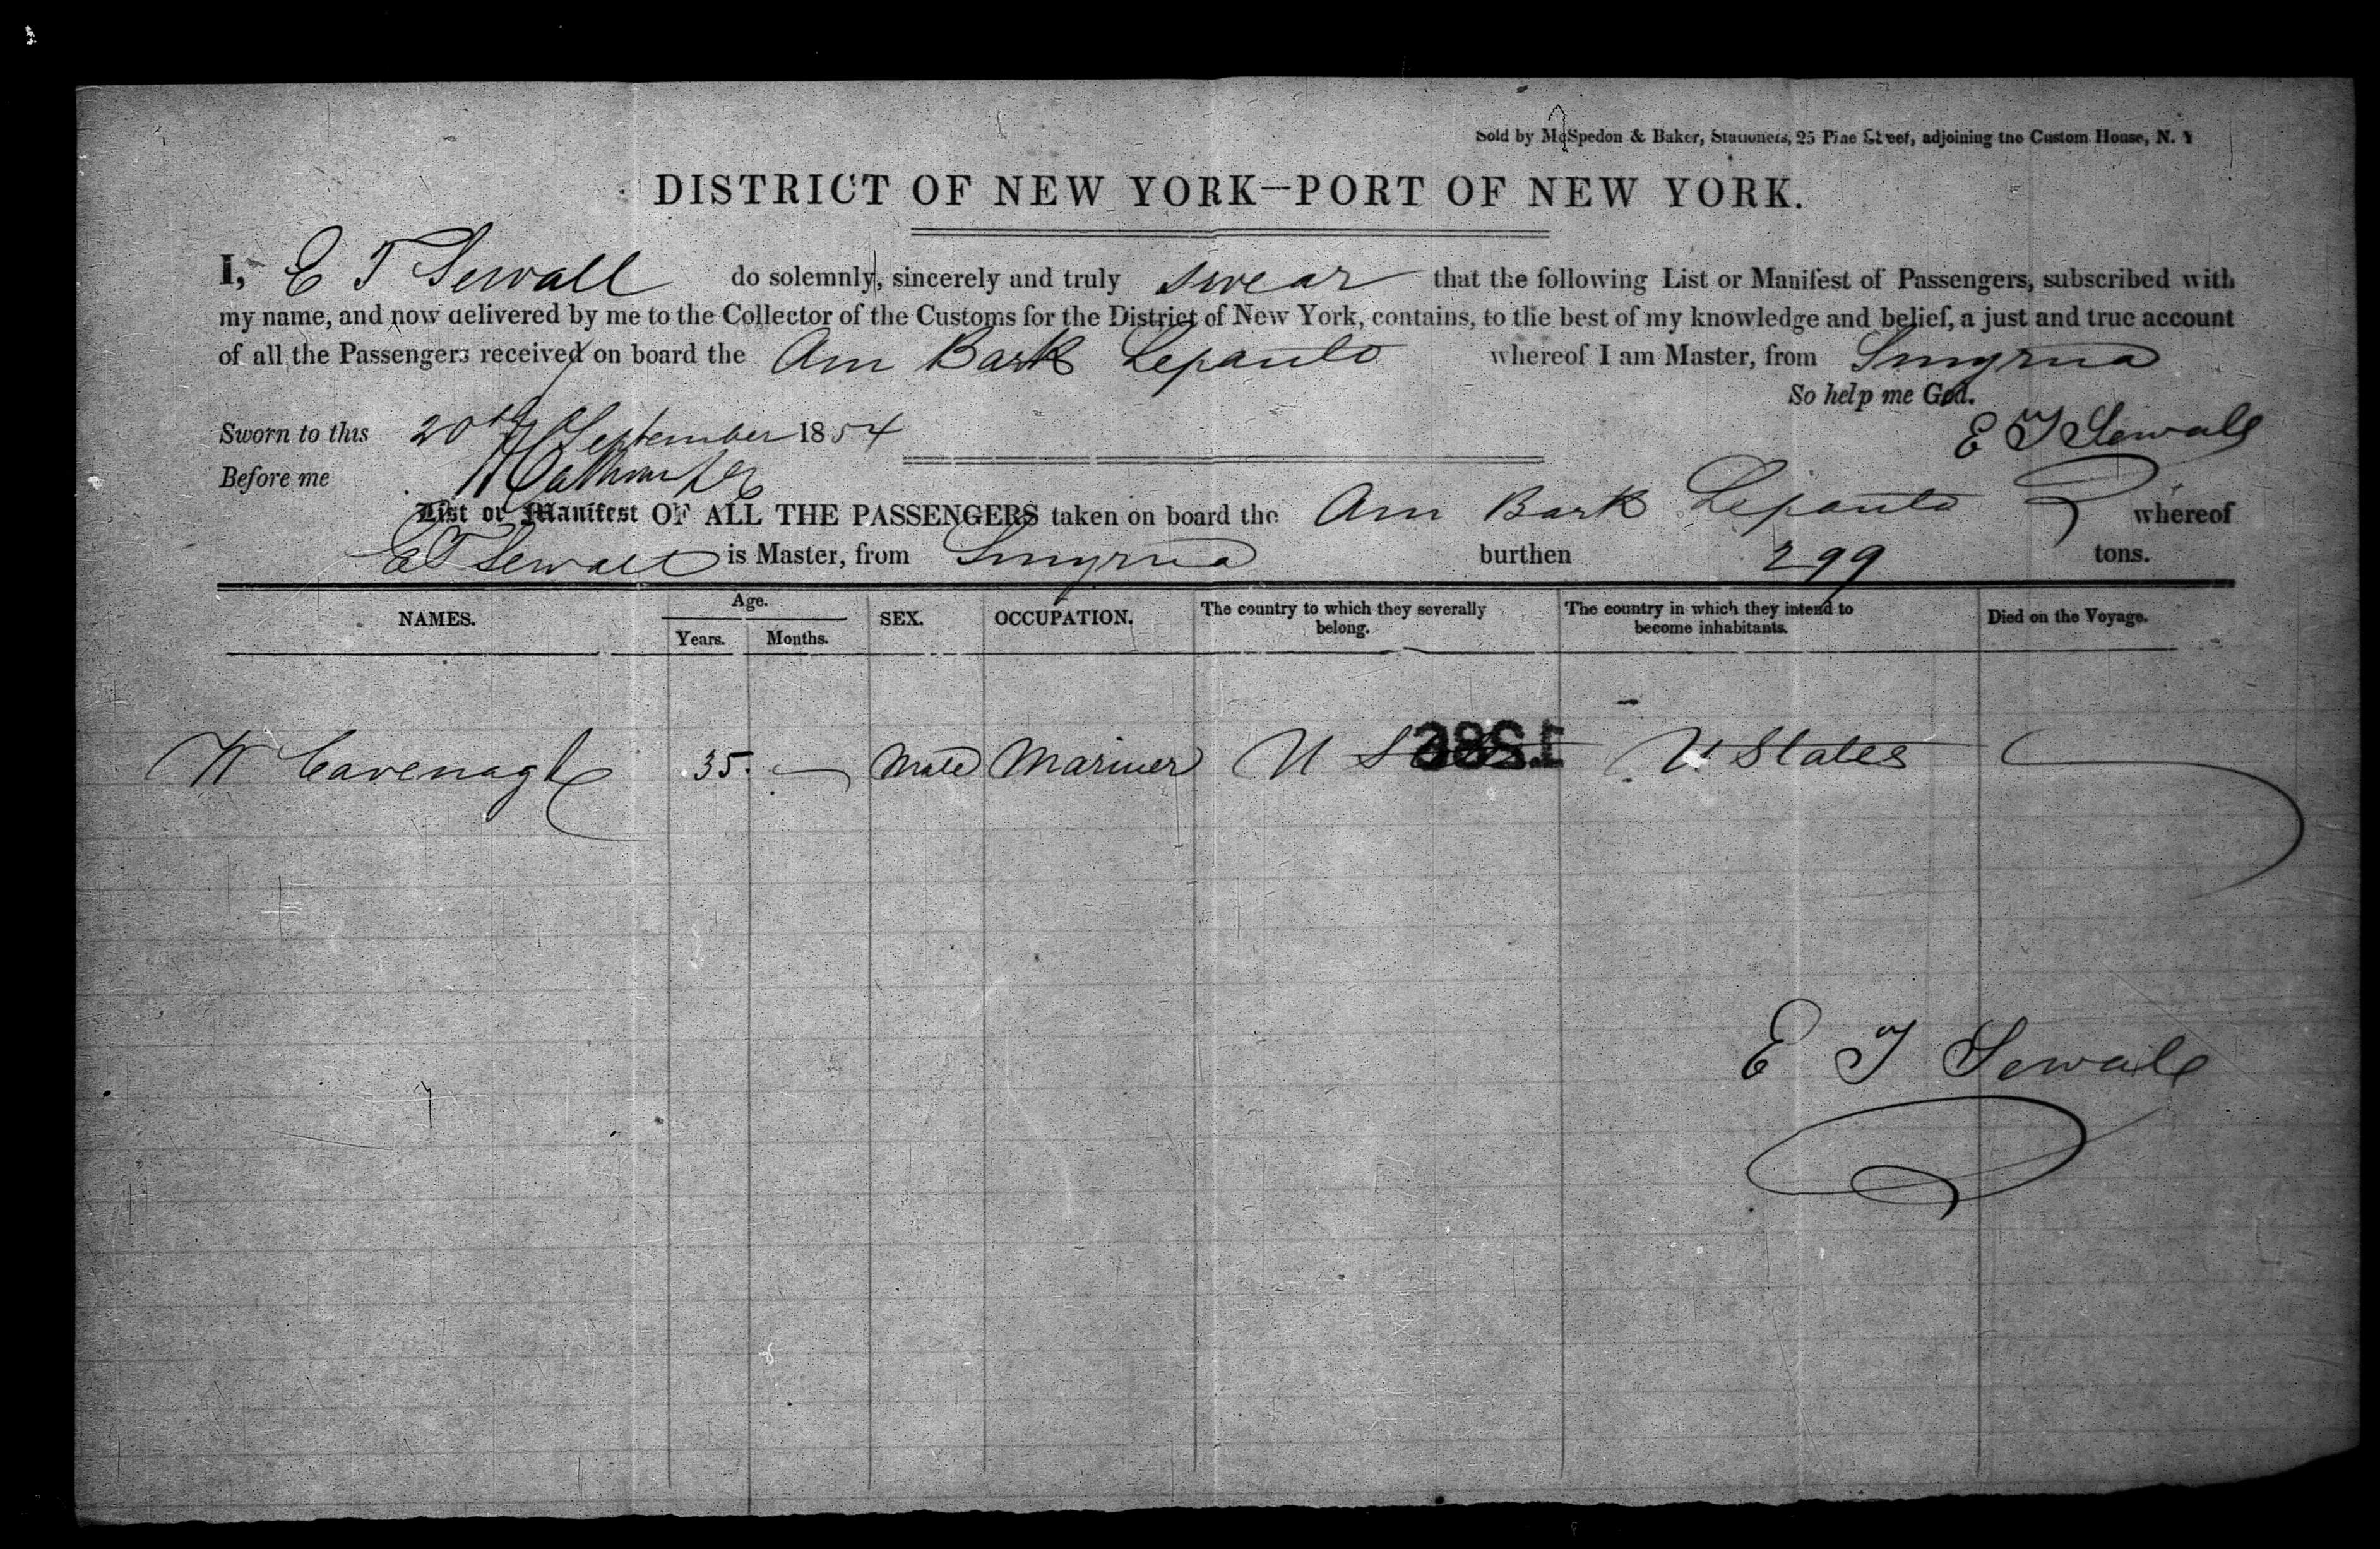 Sold by McSpedon & Baker, Stationers, 25 Pine Street, adjoining the Custom House, N. Y
DISTRICT OF NEW YORK—PORT OF NEW YORK.
I, E T Sewall do solemnly, sincerely and truly swear that the following List or Manifest of Passengers, subscribed with
my name, and now delivered by me to the Collector of the Customs for the District of New York, contains, to the best of my knowledge and belief, a just and true account
of all the Passengers received on board the Am Bark Lepanto whereof I am Master, from Smyrna
So help me God.
Sworn to this 20th September 1854
E T Sewall
Before me
List or Manifest OF ALL THE PASSENGERS taken on board the Am Bark Lepanto whereof
E T Sewall is Master, from Smyrna burthen 299 tons.
NAMES. Age. Years. Months. SEX. OCCUPATION. The country to which they severally belong. The country in which they intend to become inhabitants. Died on the Voyage.
W Cavenagh 35. — Male Mariner U States 1286 U States
E T Sewall